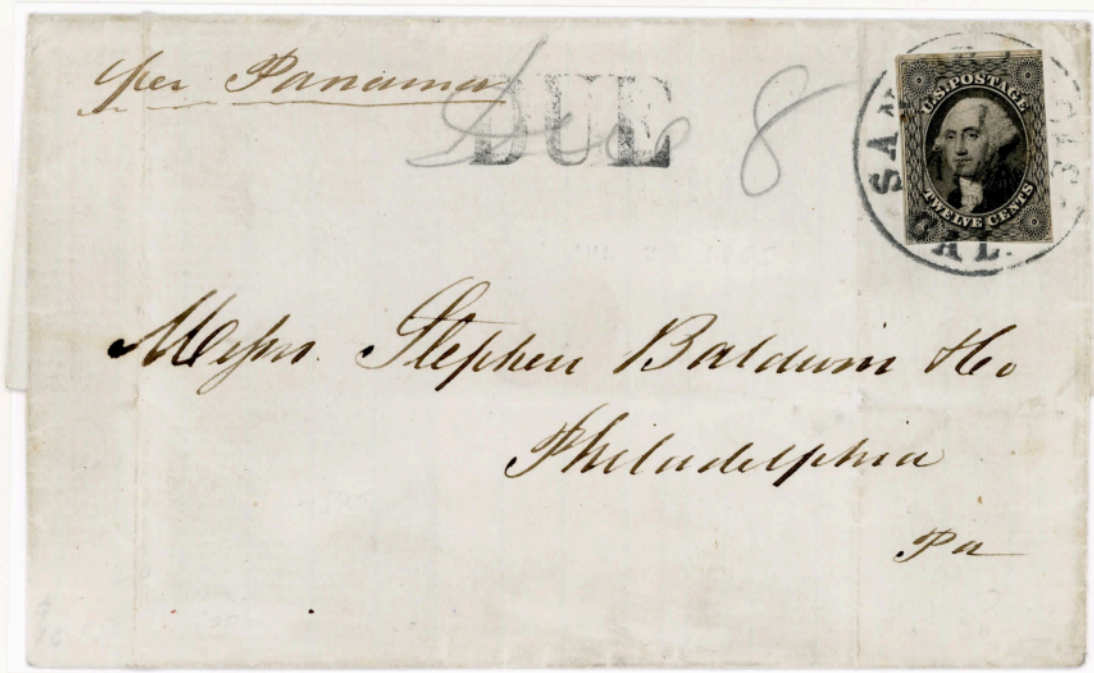 per Panama
DUE
Due 8
U.S. POSTAGE
TWELVE CENTS
SAN
CAL.
Messrs. Stephen Baldwin & Co
Philadelphia
Pa